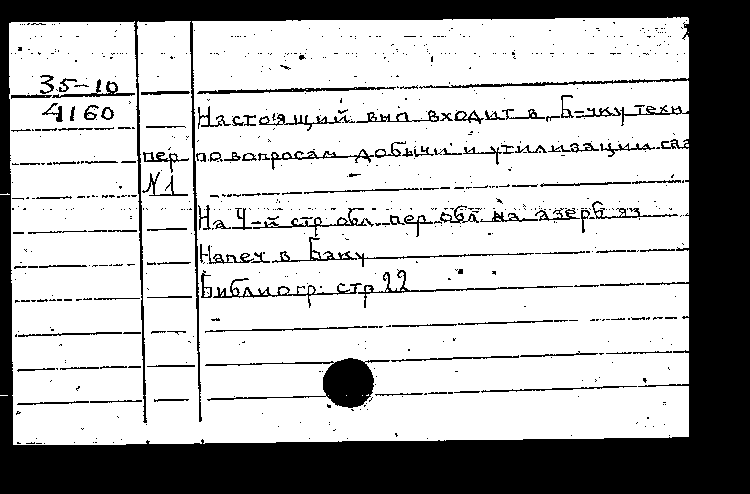 35-10
4160
Настоящий вып входит в „Б-чку техн.
пер по вопросам добычи и утилизации газ
N1
На 4-й стр обл пер обл на азерб яз
Напеч в Баку
Библиогр: стр 22